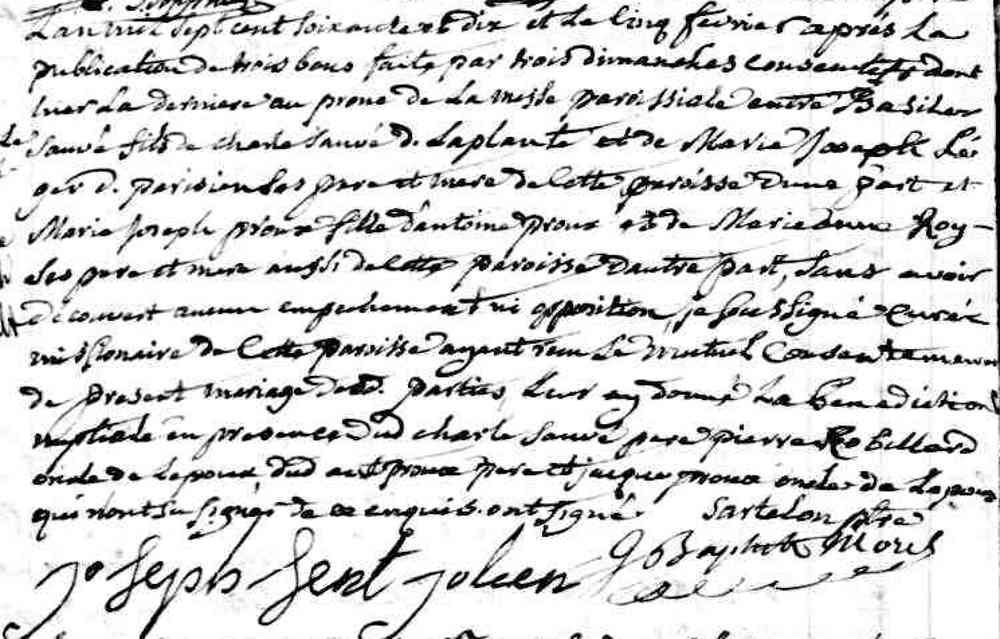 L'an mil sept cent soixante et dix et le cinq fevrier apres la
publication de trois bans faite par trois dimanches consecutifs dont
hier la derniere au prone de la messe paroissiale entre Basile
Sauvé fils de charle sauvé d. Laplante et de Marie Joseph Lé
ger d. parisien ses pere et mere de cette paroisse d'une part et
Marie Joseph proux fille d'antoine proux et de Marie anne Roy
ses pere et mere aussi de cette paroisse d'autre part, sans avoir
decouvert aucun empechement ni opposition, je soussigné curé
missionaire de cette paroisse ayant reçu le mutuel consentement
de present mariage desd. parties, leur ay donné la benediction
nuptiale en presence dud charle sauvé pere pierre Robillard
oncle de lepoux, dud ant proux pere et jacque proux oncle de lepouse
qui n'ont su signer de ce enquis. ont signé. Sartelon ptre
joseph sent julien J Baptiste Morel